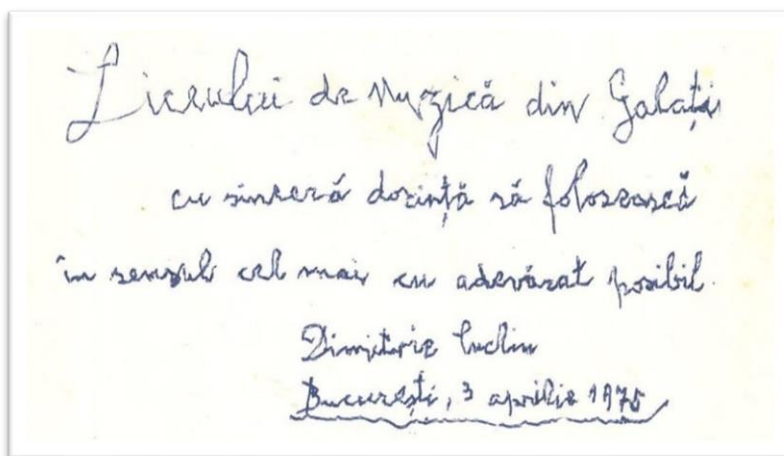 Liceului de Muzică din Galați
cu sinceră dorință să folosească
în sensul cel mai cu adevărat posibil.
Dimitrie Cuclin
București, 3 aprilie 1975